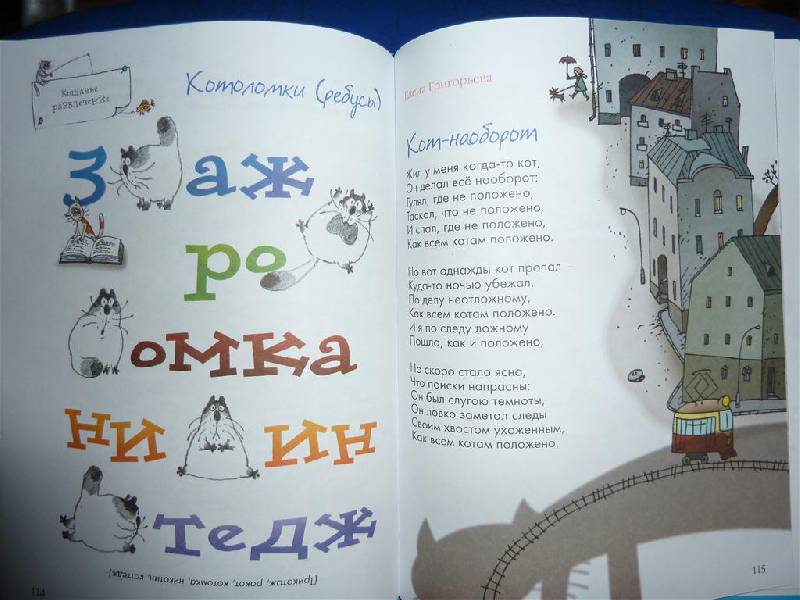 Кошачье
развлечение
Котоломки (ребусы)
3 аж
ро
омка
ни ин
тедж
(Трикотаж, рокот, котомка, никотин, коттедж)
114
Елена Григорьева
Кот-наоборот
Жил у меня когда-то кот,
Он делал всё наоборот:
Гулял, где не положено,
Таскал, что не положено,
И спал, где не положено,
Как всем котам положено.
Но вот однажды кот пропал –
Куда-то ночью убежал.
По делу неотложному,
Как всем котам положено.
И я по следу ложному
Пошла, как и положено,
Но скоро стало ясно,
Что поиски напрасны:
Он был слугою темноты,
Он ловко заметал следы
Своим хвостом ухоженным,
Как всем котам положено.
115